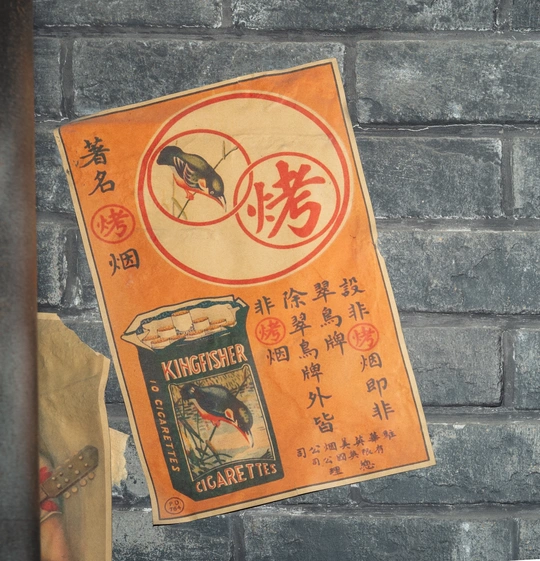 著名烤烟
烤
設非烤烟即非
翠鳥牌
除翠鳥牌外皆
非烤烟
KINGFISHER
10 CIGARETTES
CIGARETTES
英美烟公司